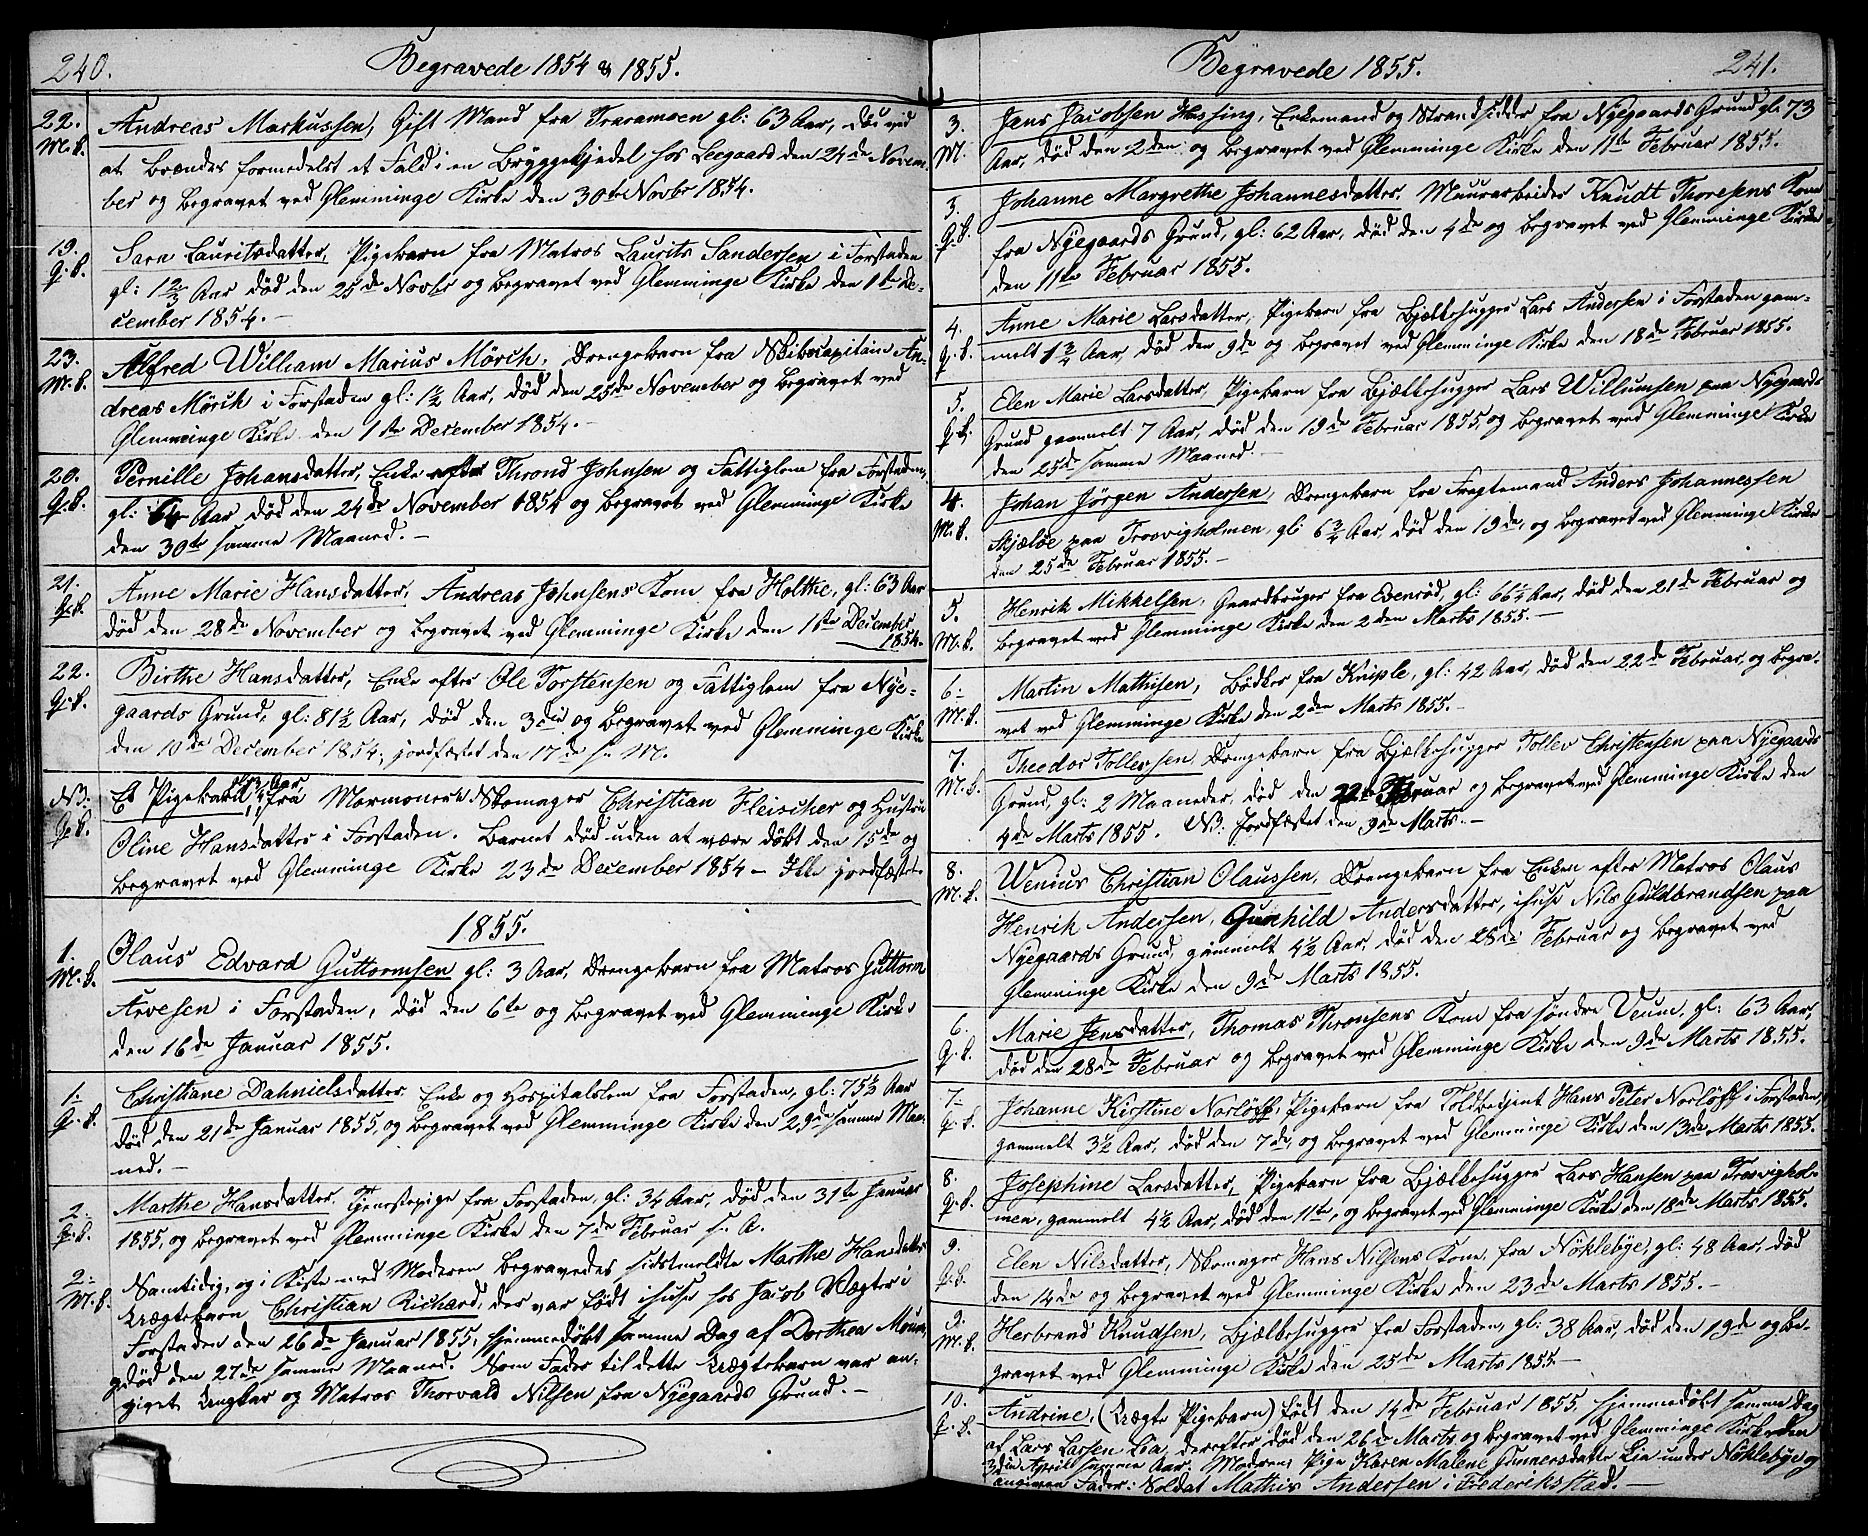 240.
Begravede 1854 & 1855.
22. M.K. Andreas Markussen, Gift Mand fra Traramoen gl: 63 Aar, døde ved
at brændes formedelst et Fald i en Bryggekjedel hos Leegaard den 24de Novem-
ber og begravet ved Glemminge Kirke den 30te Novbr 1854.
19. Q.K. Sara Lauritsdatter, Pigebarn fra Matros Laurits Sandersen i Forstaden
gl: 1 2/3 Aar død den 25de Novbr og begravet ved Glemminge Kirke den 1ste De-
cember 1854.-
23. M.K. Alfred William Marius Mörch, Drengebarn fra Skibscapitain An-
dreas Mörch i Forstaden gl: 1½ Aar, død den 25de November og begravet ved
Glemminge Kirke den 1ste December 1854.-
20. Q.K. Pernille Johansdatter, Enke efter Thrond Johnsen og Fattiglem fra Forstaden,
gl: 64 Aar død den 24de November 1854 og begravet ved Glemminge Kirke
den 30te samme Maaned.-
21. Q.K. Anne Marie Hansdatter, Andreas Johnsens Kone fra Holthe, gl: 63 Aar
død den 28de November og begravet ved Glemminge Kirke den 1ste December
1854.
22. Q.K. Birthe Hansdatter, Enke efter Ole Torstensen og Fattiglem fra Nye-
gaards Grund, gl: 81½ Aar, død den 3die og begravet ved Glemminge Kirke
den 10de December 1854, jordfæstet den 17de s. M.
NB. Q.K. Et Pigebarn fra Mormonerne Skomager Christian Fleischer og Hustru
Oline Hansdatter i Forstaden. Barnet død uden at være døbt den 15de og
begravet ved Glemminge Kirke 23de December 1854 - Ikke jordfæstet.
1855.
1. M.K. Olaus Edvard Guttormsen gl: 3 Aar, Drengebarn fra Matros Guttorm
Arvesen i Forstaden, død den 6te og begravet ved Glemminge Kirke
den 16de Januar 1855.
1. Q.K. Christiane Dahnielsdatter Enke og Hospitalslem fra Forstaden, gl: 75½ Aar
død den 21de Januar 1855, og begravet ved Glemminge Kirke den 29de samme Maa-
ned.-
2. Q.K. Marthe Hansdatter, Tjenestepige fra Forstaden, gl: 34 Aar, død den 31te Januar
1855, og begravet ved Glemminge Kirke den 7de Februar s. A.
2. M.K. Samtidig, og i Kiste med Moderen begravedes sidstmeldte Marthe Hansdatters
uægtebarn Christian Richard, der var født i huse hos Jacob Vægter i
Forstaden den 26de Januar 1855, hjemmedøbt samme Dag af Dorthea
død den 27de samme Maaned. Som Fader til dette uægtebarn var an-
givet Ungkar og Matros Thorvald Nilsen fra Nyegaards Grund.-
Begravede 1855.
241.
3. M. Jens Jacobsen Hassing, Enkemand og Strandsidder fra Nyegaards Grund gl: 73
Aar, død den 2den og begravet ved Glemminge Kirke den 11te Februar 1855.
3. Q.K. Johanne Margrethe Johannesdatter, Muurarbeider Knudt Thoresens Kone
fra Nyegaards Grund, gl: 62 Aar, død den 4de og begravet ved Glemminge Kirke
den 11te Februar 1855.
4. Q.K. Anne Marie Larsdatter, Pigebarn fra Bjælkehugger Lars Andersen i Forstaden gam-
melt 1¾ Aar, død den 9de og begravet ved Glemminge Kirke den 18de Februar 1855.
5. Q.K. Elen Marie Larsdatter, Pigebarn fra Bjælkehugger Lars Willumsen paa Nygaards
Grund gammelt 7 Aar, død den 19de Februar 1855, og begravet ved Glemminge Kirke
den 25de samme Maaned.-
4. M.K. Johan Jörgen Andersen, Drengebarn fra Fragtemand Anders Johannessen
Skjæløe paa Trosvigholmen, gl 6¾ Aar, død den 19de, og begravet ved Glemminge Kirke
den 25de Februar 1855.-
5. M.K. Henrik Mikkelsen, Gaardbruger fra Evenrød, gl: 66½ Aar, død den 21de Februar og
begravet ved Glemminge Kirke den 2den Marts 1855.-
6. M.K. Martin Mathisen, Bødker fra Kniple, gl: 42 Aar, død den 22de Februar, og begra-
vet ved Glemminge Kirke den 2den Marts 1855.-
7. M.K. Theodor Tollevsen, Drengebarn fra Bjælkehugger Tollev Christensen paa Nyegaards
Grund, gl: 2 Maaneder, død den 22de Februar og begravet ved Glemminge Kirke den
4de Marts 1855. NB: Jordfæstet den 9de Marts.-
8. M.K. Wenius Christian Olaussen, Drengebarn fra Enken efter Matros Olaus
Henrik Andersen, Gunhild Andersdatter, i huse Nils Guldbrandsen paa
Nyegaards Grund, gammelt 4½ Aar, død den 28de Februar og begravet ved
Glemminge Kirke den 9de Marts 1855.
6. Q.K. Marie Jensdatter, Thomas Thronsens Kone fra søndre Veum, gl: 63 Aar,
død den 28de Februar og begravet ved Glemminge Kirke den 9de Marts 1855.
7. Q.K. Johanne Kirstine Norløff, Pigebarn fra Toldbetjent Hans Peter Norløff i Forstaden,
gammelt 3½ Aar, død den 7de, og begravet ved Glemminge Kirke den 13de Marts 1855.
8. Q.K. Josephine Larsdatter, Pigebarn fra Bjælkehugger Lars Hansen paa Trosvighol-
men, gammelt 4½ Aar, død den 11te, og begravet ved Glemminge Kirke den 18de Marts 1855.
9. Q.K. Elen Nilsdatter, Skomager Hans Nilsens Kone, fra Nöklebye, gl: 48 Aar, død
den 14de og begravet ved Glemminge Kirke den 23de Marts 1855.-
9. M.K. Herbrand Knudsen, Bjælkehugger fra Forstaden, gl: 38 Aar, død den 19de og be-
gravet ved Glemminge Kirke den 25de Marts 1855-
10. Q.K. Andrine, (uægte Pigebarn) født den 14de Februar 1855, hjemmedøbt samme Dag
af Lars Larsen Lia, derefter død den 26de Marts og begravet ved Glemminge Kirke den
3die April samme Aar. Moderen: Pige Karen Malene Gunnersdatter Lia under Nöklebye og
angiven Fader: Soldat Mathis Andersen i Frederiksstad.-